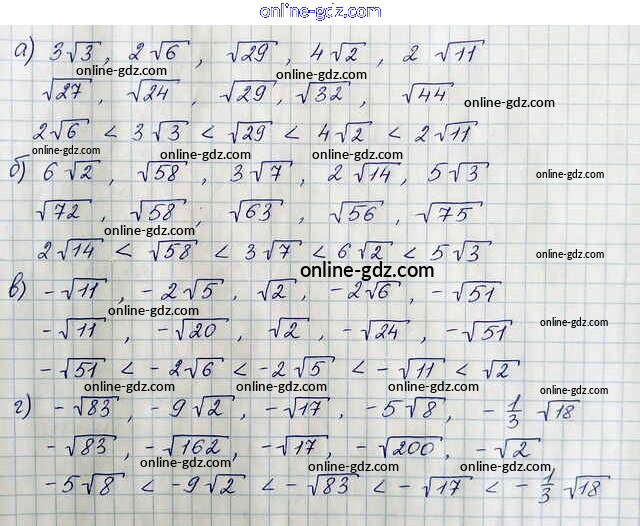 online-gdz.com
а) 3√3, 2√6, √29, 4√2, 2 √11
online-gdz.com online-gdz.com
√27, √24, √29, √32, √44
online-gdz.com
online-gdz.com
2√6 < 3√3 < √29 < 4√2 < 2√11
online-gdz.com online-gdz.com online-gdz.com
б) 6√2, √58, 3√7, 2√14, 5√3
online-gdz.com
√72, √58, √63, √56, √75
online-gdz.com online-gdz.com
2√14 < √58 < 3√7 < 6√2 < 5√3
online-gdz.com
online-gdz.com
в) -√11, -2√5, √2, -2√6, -√51
online-gdz.com online-gdz.com
-√11, -√20, √2, -√24, -√51
online-gdz.com
-√51 < -2√6 < -2√5 < -√11 < √2
online-gdz.com online-gdz.com online-gdz.com
г) -√83, -9√2, -√17, -5√8, -1/3 √18
online-gdz.com
-√83, -√162, -√17, -√200, -√2
online-gdz.com online-gdz.com online-gdz.com
-5√8 < -9√2 < -√83 < -√17 < -1/3 √18
online-gdz.com